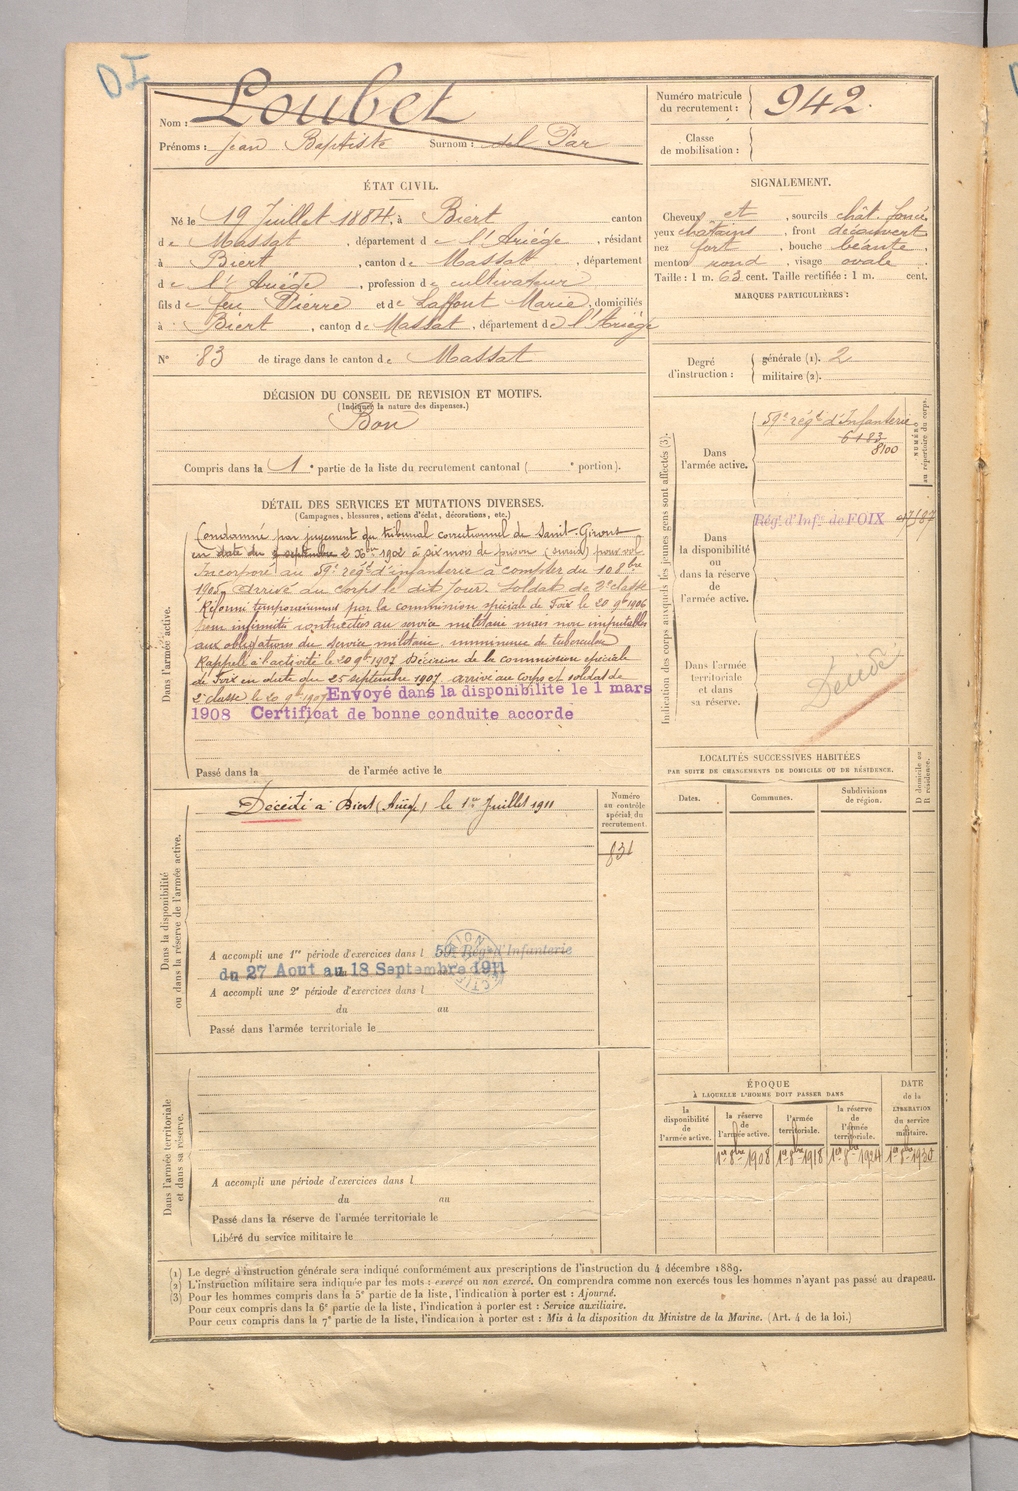 DI
Nom : Loubet
Prénoms : Jean Baptiste Surnom : del Par
Numéro matricule du recrutement : 942.
Classe de mobilisation :
ÉTAT CIVIL.
Né le 19 Juillet 1884, à Biert canton
de Massat, département de l'Ariège, résidant
à Biert, canton de Massat, département
de l'Ariège, profession de cultivateur
fils de feu Pierre et de Laffont Marie, domiciliés
à Biert, canton de Massat, département de l'Ariège
N° 83 de tirage dans le canton de Massat
SIGNALEMENT.
Cheveux et, sourcils chât. foncé,
yeux châtains, front découvert
nez fort, bouche béante,
menton rond, visage ovale.
Taille : 1 m. 63 cent. Taille rectifiée : 1 m. cent.
MARQUES PARTICULIÈRES :
Degré d'instruction : générale (1). 2
militaire (2).
DÉCISION DU CONSEIL DE REVISION ET MOTIFS.
(Indiquer la nature des dispenses.)
Bon
Compris dans la 1e partie de la liste du recrutement cantonal ( e portion).
DÉTAIL DES SERVICES ET MUTATIONS DIVERSES.
(Campagnes, blessures, actions d'éclat, décorations, etc.)
Dans l'armée active.
Condamné par jugement du tribunal correctionnel de Saint-Girons
en date du 2 septembre 2 Xbre 1902 à six mois de prison (sursis) pour vol
Incorporé au 59e régt d'infanterie à compter du 10 8bre
1905, arrivé au corps le dit jour. Soldat de 2e classe
Réformé temporairement par la commission spéciale de Foix le 20 9bre 1906
pour infirmités contractées au service militaire mais non imputables
aux obligations du service militaire. imminence de tuberculose
Rappelé à l'activité le 20 9bre 1907 Décision de la commission spéciale
de Foix en date du 25 septembre 1907 arrivé au corps et soldat de
2e classe le 20 9bre 1907 Envoyé dans la disponibilité le 1 mars
1908 Certificat de bonne conduite accorde
Passé dans la de l'armée active le
Indication des corps auxquels les jeunes gens sont affectés (3).
NUMÉRO au répertoire du corps.
Dans l'armée active.
59e régt d'Infanterie
6183
8100
Rég. d'Inf. de FOIX
Dans la disponibilité ou dans la réserve de l'armée active.
Dans l'armée territoriale et dans sa réserve.
Décédé
LOCALITÉS SUCCESSIVES HABITÉES
PAR SUITE DE CHANGEMENTS DE DOMICILE OU DE RÉSIDENCE.
D domicile ou R résidence.
Dates. Communes. Subdivisions de région.
Dans la disponibilité ou dans la réserve de l'armée active.
Décédé à Biert (Ariège) le 1er Juillet 1911
Numéro au contrôle spécial du recrutement.
831
A accompli une 1re période d'exercices dans l 59e Régt d'Infanterie
du 27 Aout au 18 Septembre 1911
A accompli une 2e période d'exercices dans l
du au
Passé dans l'armée territoriale le
Dans l'armée territoriale et dans sa réserve.
A accompli une période d'exercices dans l
du au
Passé dans la réserve de l'armée territoriale le
Libéré du service militaire le
ÉPOQUE
À LAQUELLE L'HOMME DOIT PASSER DANS
la disponibilité de l'armée active.
la réserve de l'armée active.
l'armée territoriale.
la réserve de l'armée territoriale.
DATE de la LIBÉRATION du service militaire.
1er 8bre 1908 1er 8bre 1918 1er 8bre 1924 1er 8bre 1930
(1) Le degré d'instruction générale sera indiqué conformément aux prescriptions de l'instruction du 4 décembre 1889.
(2) L'instruction militaire sera indiquée par les mots : exercé ou non exercé. On comprendra comme non exercés tous les hommes n'ayant pas passé au drapeau.
(3) Pour les hommes compris dans la 5e partie de la liste, l'indication à porter est : Ajourné.
Pour ceux compris dans la 6e partie de la liste, l'indication à porter est : Service auxiliaire.
Pour ceux compris dans la 7e partie de la liste, l'indication à porter est : Mis à la disposition du Ministre de la Marine. (Art. 4 de la loi.)